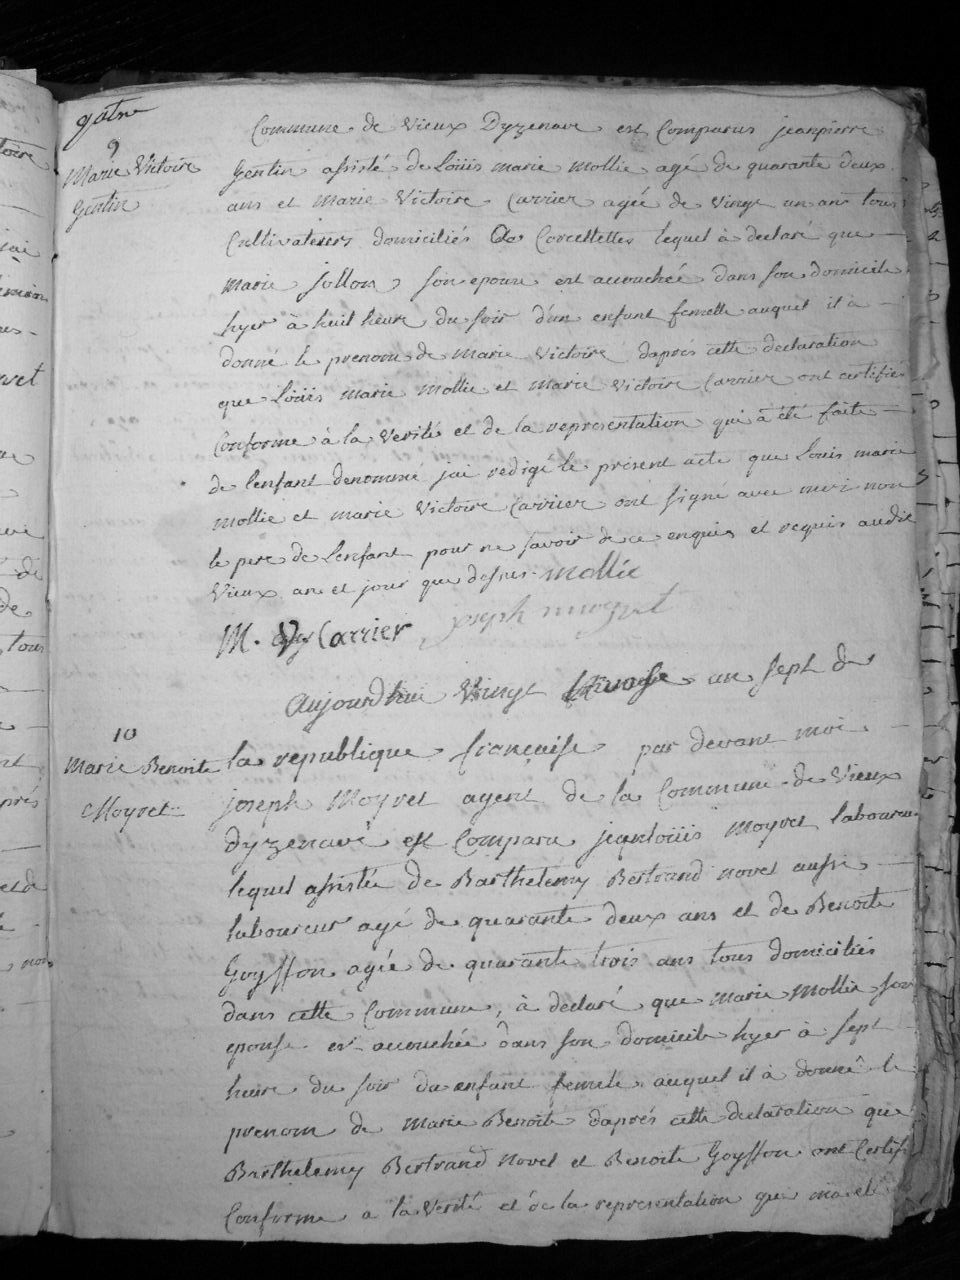 gatre
Commune de Vieux Dyzenave est Comparus jeanpierre
9
Marie Victoire
Gentin
Gentin assisté de Loüis marie mollie agé de quarante deux
ans et Marie Victoire Carrier agée de Vingt un ans tous
Cultivateurs domiciliés a Corcellettes lequel à declaré que
marie jollon son epouse est accouchée dans son domicile
hyer à huit heure du soir d'un enfant femelle auquel il à
donné le prenom de Marie Victoire daprés cette declaration
que Loüis marie Mollie et Marie Victoire Carrier ont certifié
Conforme à la Verité et de la representation qui à été faite
de lenfant denommé jai redigé le présent acte que Louis marie
mollie et marie Victoire Carrier ont signé avec moi non
le pere de Lenfant pour ne savoir de ce enquis et requis audit
Vieux an et jour que dessus. Mollie
M. V Carrier joseph moyret
Aujourdhui Vingt an sept de
10
Marie Benoite
Moyret
la republique française par devant moi
joseph Moyret agent de la Commune de Vieux
dyzenave est Comparu jeanloüis Moyret laboureur
lequel assistée de Barthelemy Bertrand novet aussi
laboureur agé de quarante deux ans et de Benoite
Goyffon agée de quarante trois ans tous domiciliés
dans cette Commune, à declaré que marie Mollie son
epouse est accouchée dans son domicile hyer à sept
heure du soir du enfant femele auquel il à donné le
prenom de Marie Benoite daprés cette declaration que
Barthelemy Bertrand novet et Benoite Goyffon ont Certif
Conforme a la Verité et de la representation que ma et